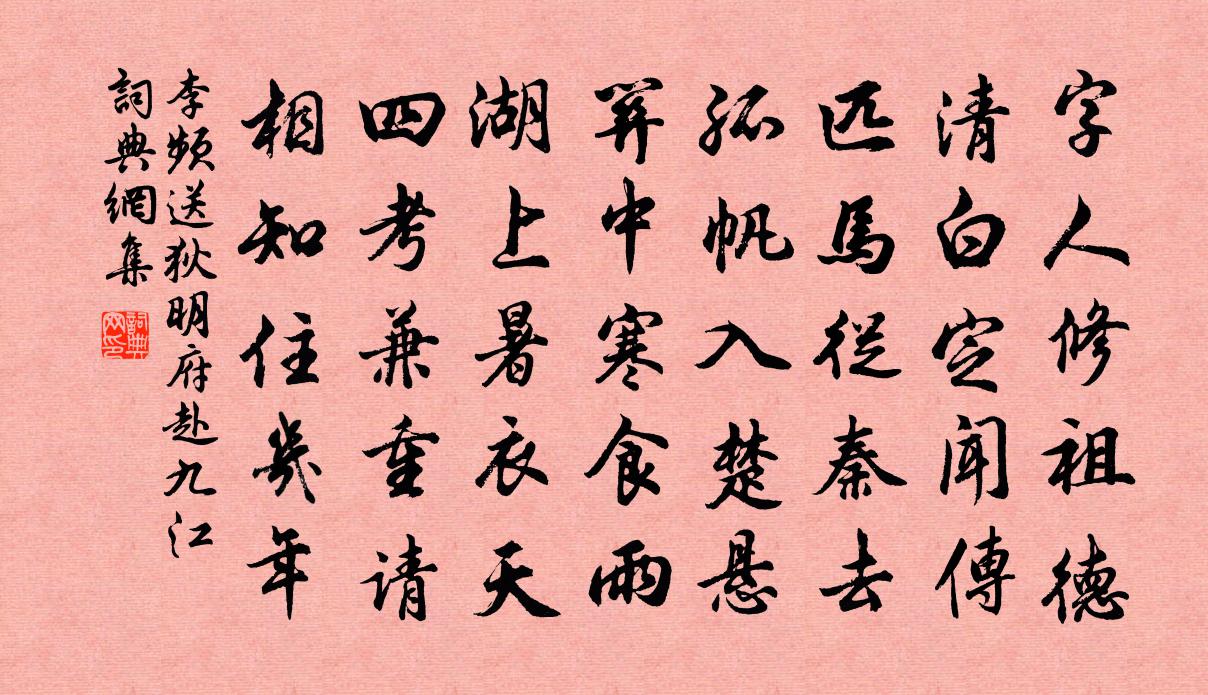 字人修祖德
清白定聞傳
匹馬從秦去
孤帆入楚悬
關中寒食雨
湖上暑衣天
四考兼重请
相知住幾年
李频送狄明府赴九江
詞典網集
詞典网印